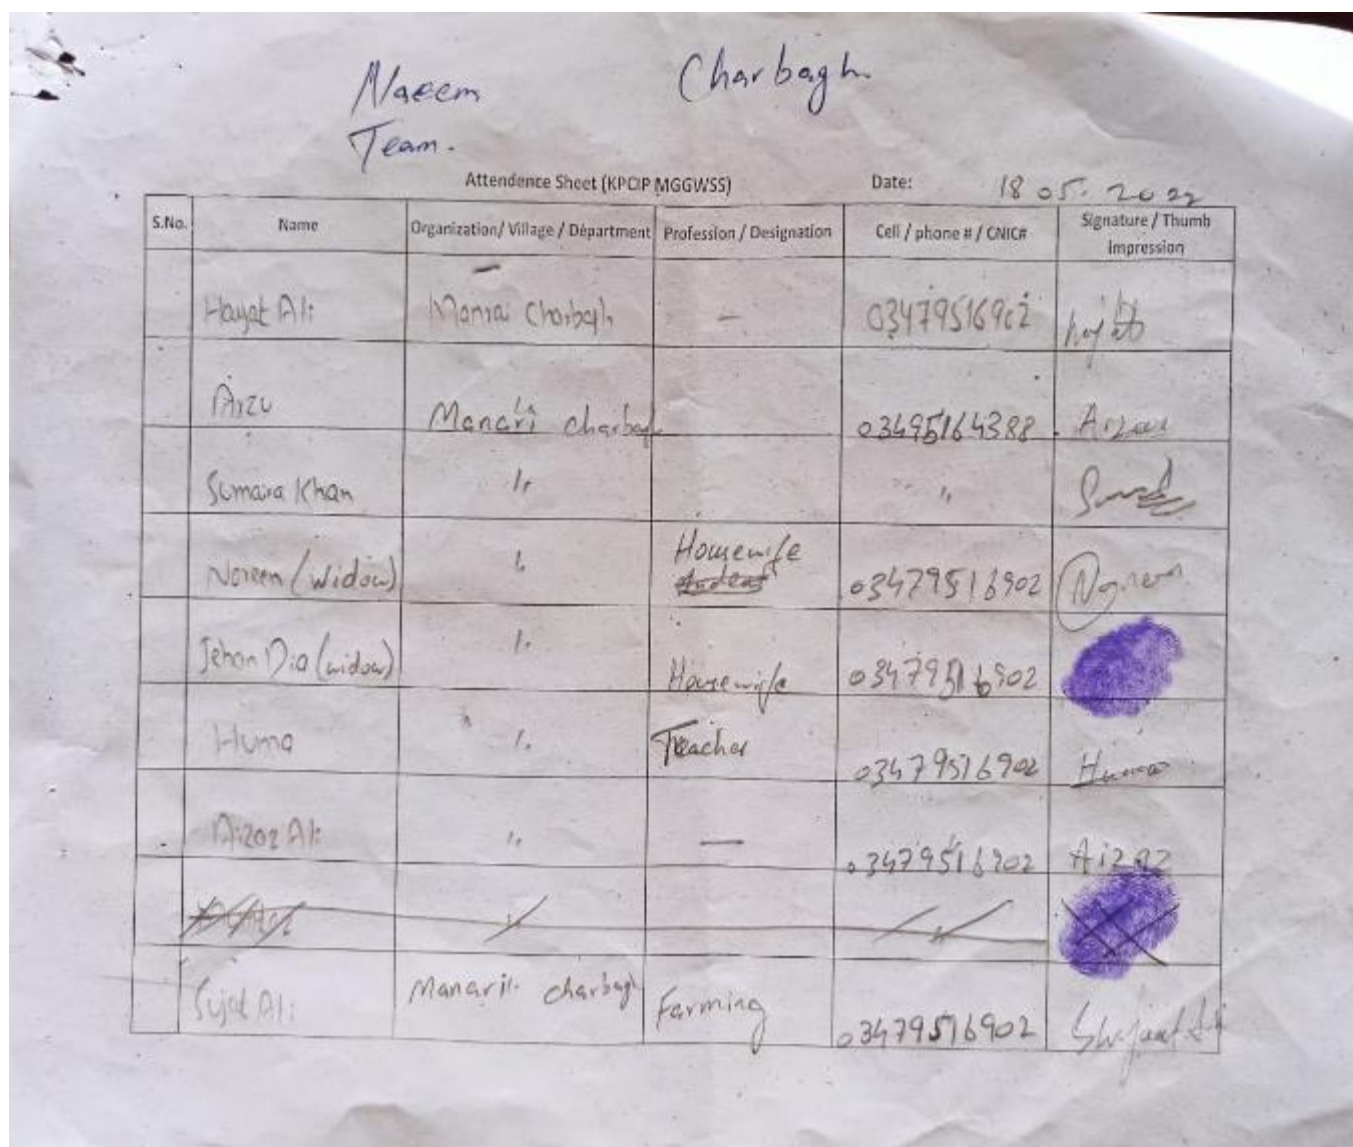 Naeem Charbagh
Team.
Attendence Sheet (KPCIP MGGWSS) Date: 18 05. 2022
S.No. Name Organization/ Village / Départment Profession / Designation Cell / phone # / CNIC# Signature / Thumb Impression
Hayat Ali Charbagh — 03479516902 hayat
Arzu Manari charbagh 03495164388 Arzu
Sumaira Khan 〃 〃
Noreen (widow) 〃 Housewife 03479516902 Noreen
Jehan (widow) 〃 Housewife 03479516902
Huma 〃 Teacher 03479516902 Huma
Aizaz Ali 〃 — 03479516902 Aizaz
Sujat Ali Manari charbagh Farming 03479516902 Shujaat Ali